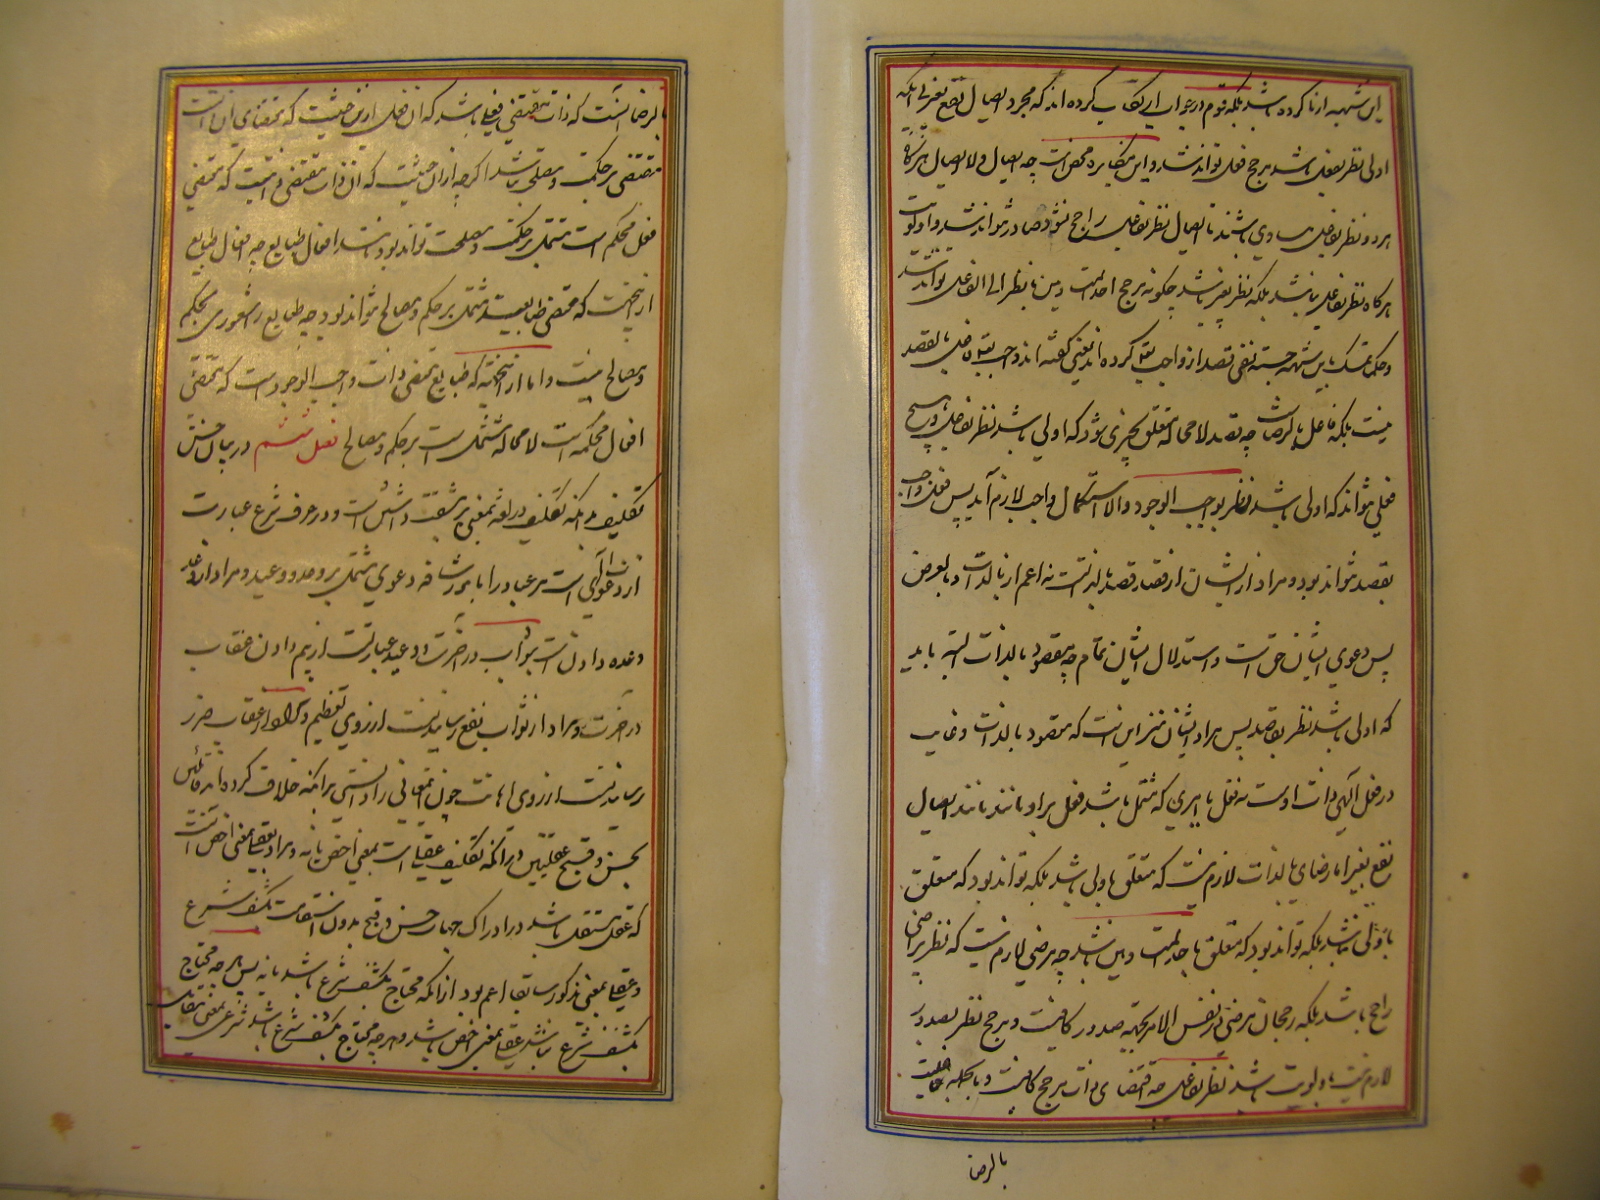 این شبهه ازنا کرده باشد بلکه قوم در جواب این کتاب کرده اند که مجرد ایصال نفع بغیر تا آنکه
اولی نظر بفعل باشد مرجح فعل تواند شد و این مکابره محض است چه ایصال و لا ایصال هرگاه
هر دو نظر بفاعل مساوی باشند تا ایصال نظر بفاعل راجح نشود صادر نتواند شد و اولویت
هرگاه نظر بفاعل نباشد بلکه نظر بغیر باشد چگونه مرجح احد الطرفین نظر الی الفاعل تواند شد
و حکما بتمسک باین شبهه جسته نفی قصد از واجب تعالی کرده اند یعنی گفته اند واجب تعالی فاعل بالقصد
نیست بلکه فاعل بالرضاست چه قصد لا محاله متعلق بچیزی شود که اولی باشد نظر بفاعل و هیچ
فعلی نتواند که اولی باشد نظر بواجب الوجود والا استکمال واجب لازم آید پس فعل واجب
بقصد نتواند بود و مراد ایشان از قصد قصد بالذاتست نه اعم از بالذات و بالعرض
پس دعوی ایشان حق است و استدلال ایشان تمام چه مقصود بالذات البته باید
که اولی باشد نظر بقاصد پس مراد ایشان نیز این است که مقصود بالذات و غایت
در فعل آلهی ذات اوست نه فعل یا امری که مشتمل باشد فعل بر او مانند مانند ایصال
نفع بغیر اما رضای بالذات لازم نیست که متعلق باولی باشد بلکه تواند بود که متعلق
باولی نباشد بلکه تواند بود که متعلق باحد الطرفین باشد چه مرضی لازم نیست که نظر براضی
راجح باشد بلکه رجحان مرضی در نفس الامر بجهة صدور کافیست و مرجح نظر بصدور
لازم نیست باولویت باشد نظر بفاعل چه اقتضای ذات مرجح کافیست و بالجمله فاعلیت
بالرضا
بالرضا آنست که ذات مقتضی فعل باشد که آن فعل از این حیثیت که بمقتضای آن ذات است
مقتضی بر حکمت و مصلحت باشد اگر چه از آن حیثیت که آن ذات مقتضی و است که مقتضی
فعل محکم است مشتمل بر حکمت و مصلحت تواند بود مانند افعال طبایع چه افعال طبایع
از اینجهت که مقتضی طبایعند مشتمل بر حکم و مصالح نتواند بود چه طبایع را شعوری بحکم
و مصالح نیست و اما از اینجهت که طبایع بمقتضی ذات واجب الوجودست که مقتضی
افعال محکمه است لا محاله مشتمل است بر حکم و مصالح فصل ششم در بیان حسن
تکلیف بدانکه تکلیف در لغت بمعنی بر مشقت داشتن است و در عرف شرع عبارت
از دعوت آلهی است مر عباد را بامور شاقه دعوتی مشتمل بر وعد و وعید و مراد از وعد
وعده دادن است بثواب در آخرت و وعید عبارتست از بیم دادن عقاب
در آخرت و مراد از ثواب نفع رسانیدنست از روی تعظیم و مراد از عقاب ضرر
رسانیدنست از روی اهانت چون این معانی را دانستی بدانکه خلاف کرده اند قائلین
بحسن و قبح عقلیین در آنکه تکلیف عقلیست بمعنی اخص یا نه و مراد بعقلی بمعنی اخص آنست
که عقل مستقل باشد در ادراک جهات حسن و قبح بدون استعانت بکشف شرع
و عقلی بمعنی مذکور سابقا اعم بود از آنکه محتاج بکشف شرع باشد یا نه پس هر چه محتاج
بکشف شرع نباشد عقلی بمعنی اخص باشد و هر چه محتاج بکشف شرع باشد شرعی بمعنی مقابل